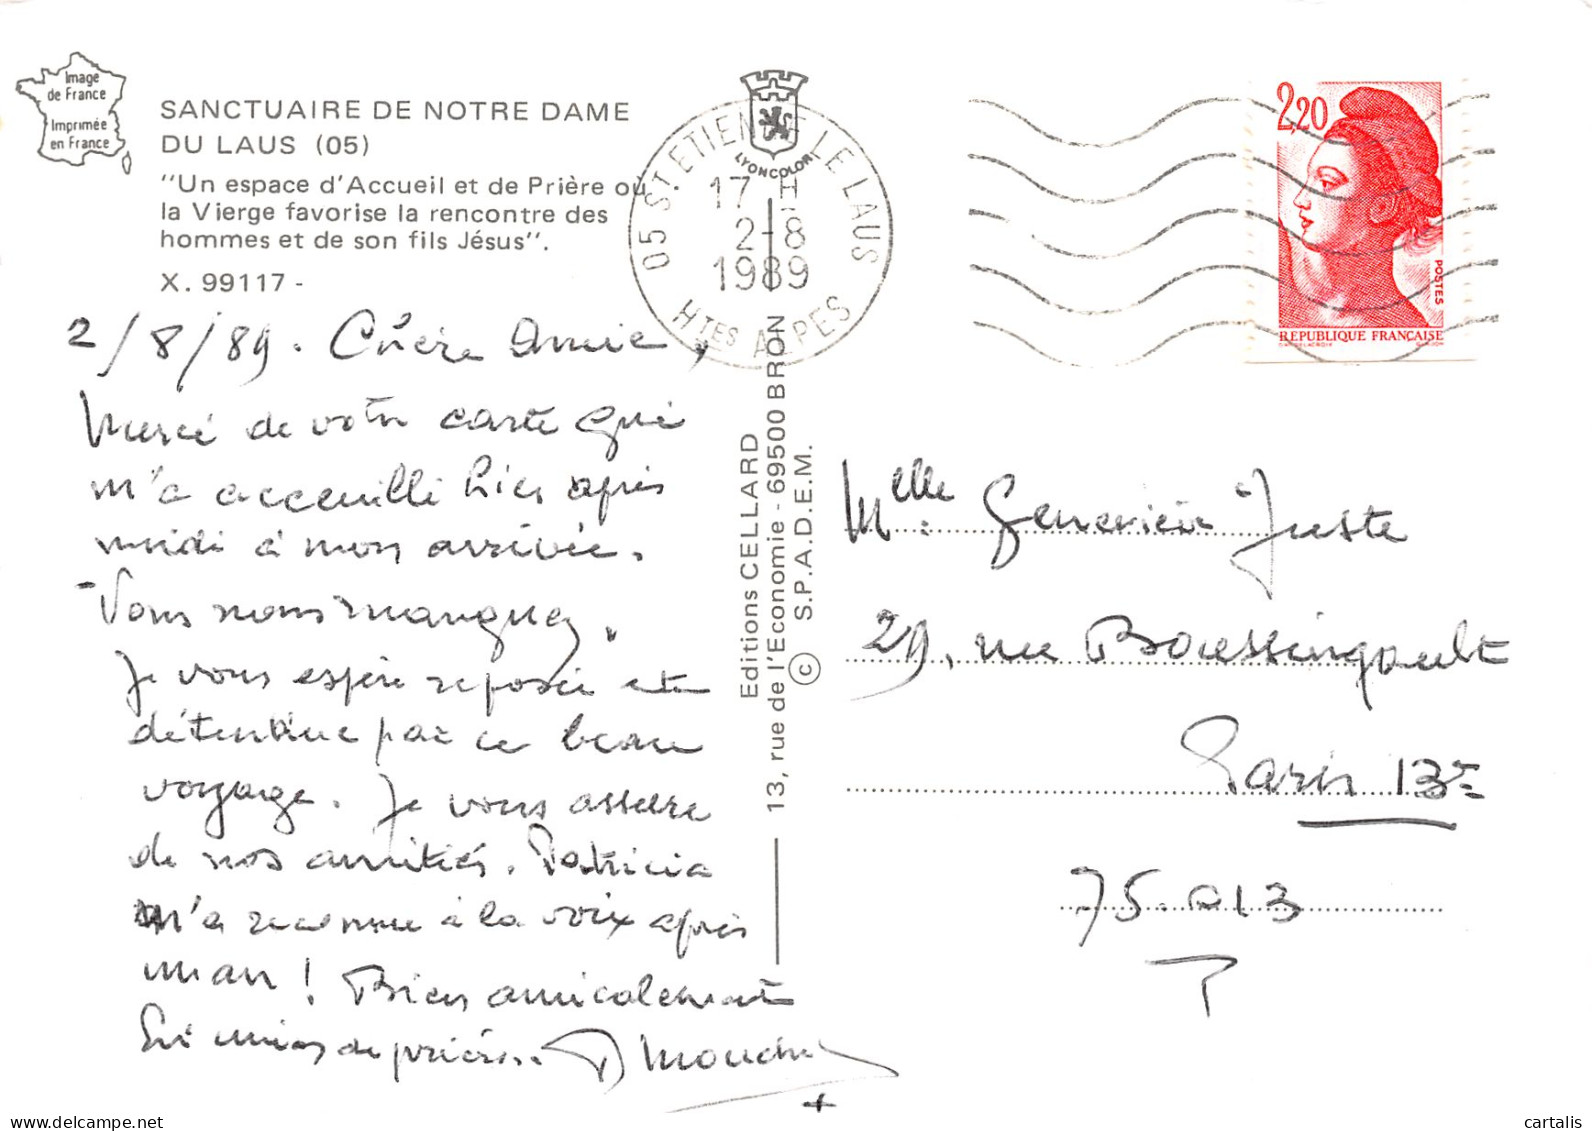 Image
de France
Imprimée
en France
SANCTUAIRE DE NOTRE DAME
DU LAUS (05)
"Un espace d'Accueil et de Prière où
la Vierge favorise la rencontre des
hommes et de son fils Jésus".
X. 99117 -
LYONCOLOR
05 ST ETIENNE LE LAUS
17 H
2-8
1989
HTES ALPES
2,20
POSTES
REPUBLIQUE FRANÇAISE
2/8/89. Chère Amie,
Merci de votre carte qui
m'a accueilli hier après
midi à mon arrivée.
- Vous nous manquez.
Je vous espère reposée et
détendue par ce beau
voyage. Je vous assure
de nos amitiés. Patricia
m'a reconnue à la voix après
Bien amicalement
de prières.
Editions CELLARD
13, rue de l'Economie - 69500 BRON
© S.P.A.D.E.M.
Melle Geneviève Juste
29, rue Boussingault
Paris 13e
75.013
P
cartalis
delcampe.net